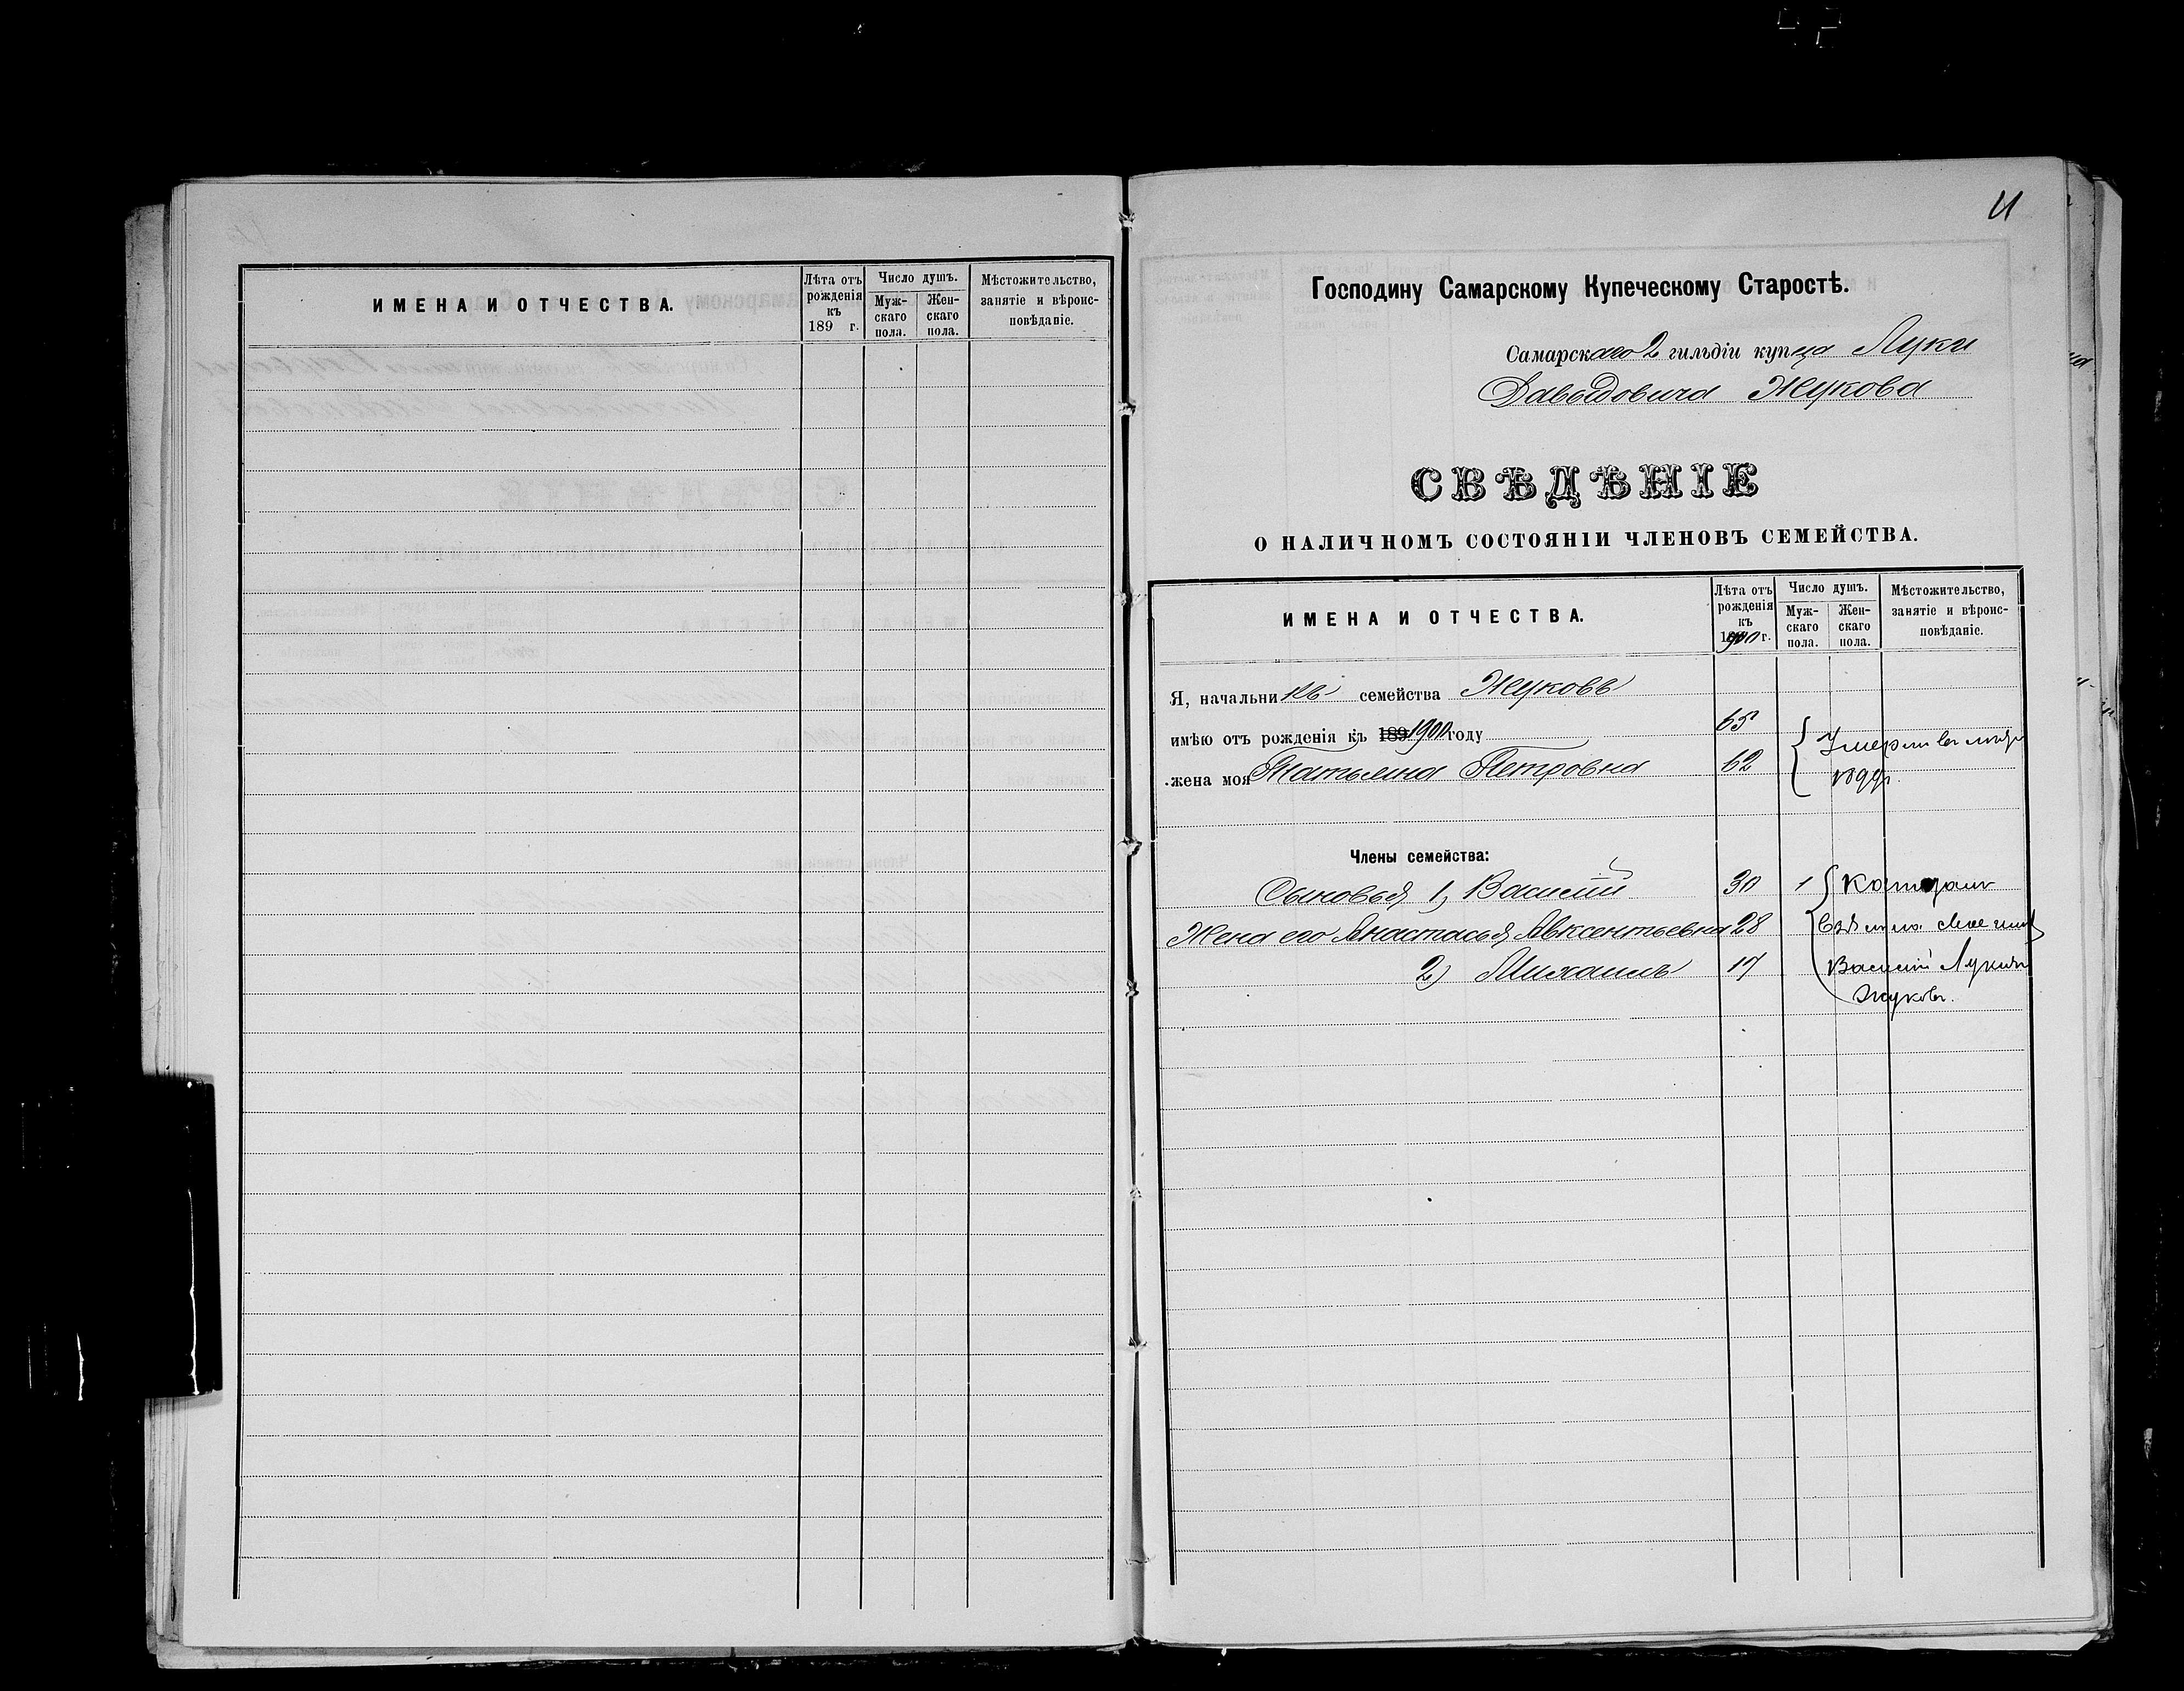 ИМЕНА И ОТЧЕСТВА.
Лѣта отъ рожденія къ 189 г.
Число душъ.
Мужскаго пола.
Женскаго пола.
Мѣстожительство, занятіе и вѣроисповѣданіе.
Господину Самарскому Купеческому Старостѣ.
Самарскаго 2 гильдіи купца Луки
Давыдовича Жукова
СВѢДѢНІЕ
О НАЛИЧНОМЪ СОСТОЯНІИ ЧЛЕНОВЪ СЕМЕЙСТВА.
ИМЕНА И ОТЧЕСТВА.
Лѣта отъ рожденія къ 1900 г.
Число душъ.
Мужскаго пола.
Женскаго пола.
Мѣстожительство, занятіе и вѣроисповѣданіе.
Я, начальникъ семейства Жуковъ
имѣю отъ рожденія къ 189 1900 году 65
жена моя Татьяна Петровна 62
Умерли въ
Члены семейства:
Сыновья 1, Василій 30 1
Жена его Анастасья Авксентьевна 28
2) Михаилъ 17
Василій Лукичъ
Жуковъ.